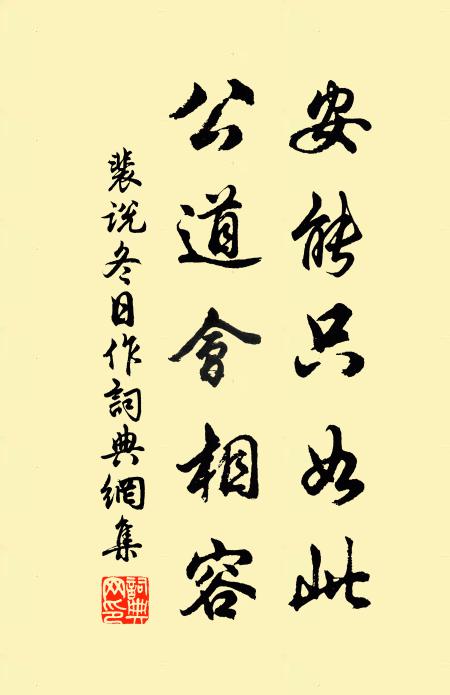 安能只如此
公道會相容
裴說冬日作詞典網集
詞典
网印